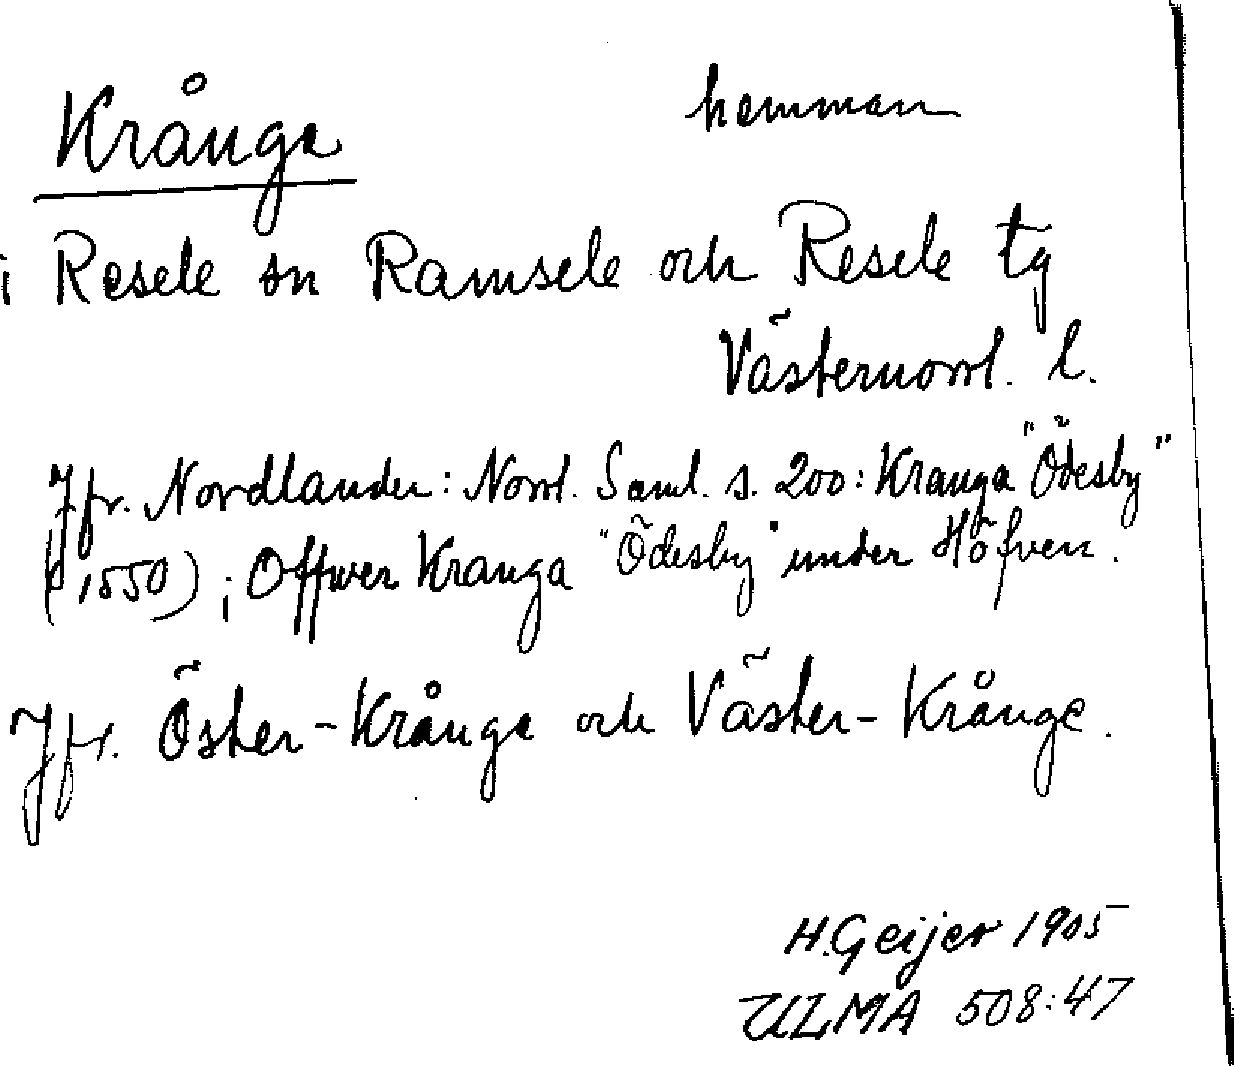 Krånge hemman
i Resele sn Ramsele och Resele tg
Västernorrl. l.
Jfr. Nordlander: Norrl. Saml. s. 200: Kranga "Ödesby"
(1550); Offwer Kranga "Ödesby" under Höfven.
Jfr. Öster-Krånge och Väster-Krånge.
H. Geijer 1905
ULMA 508:47